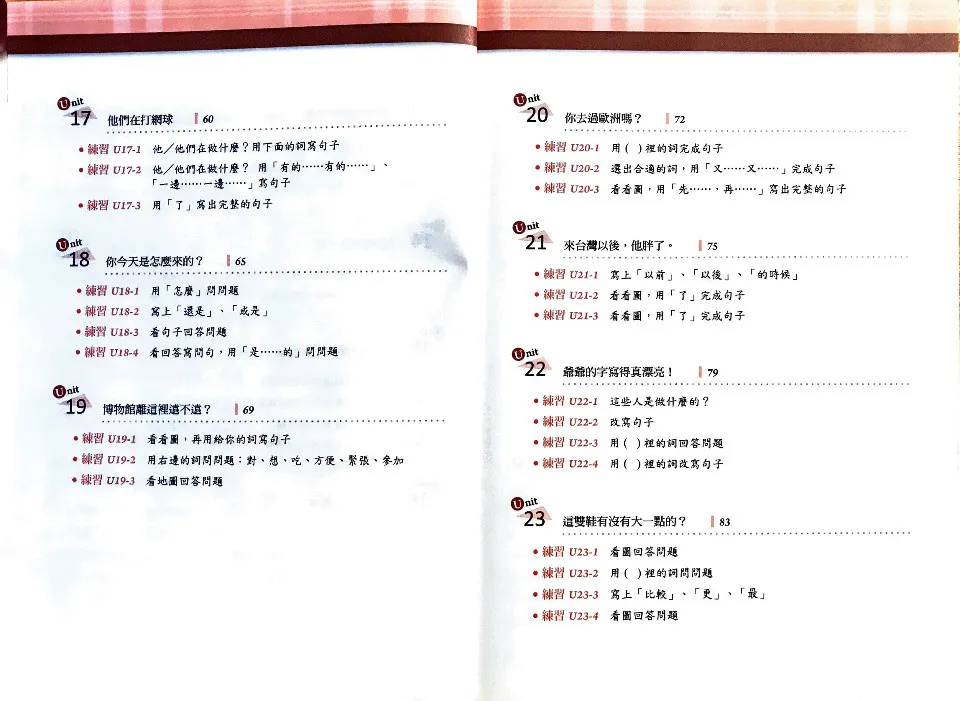 Unit
17 他們在打網球 60
• 練習 U17-1 他／他們在做什麼？用下面的詞寫句子
• 練習 U17-2 他／他們在做什麼？ 用「有的……有的……」、
「一邊……一邊……」寫句子
• 練習 U17-3 用「了」寫出完整的句子
Unit
18 你今天是怎麼來的？ 65
• 練習 U18-1 用「怎麼」問問題
• 練習 U18-2 寫上「還是」、「或是」
• 練習 U18-3 看句子回答問題
• 練習 U18-4 看回答寫問句，用「是……的」問問題
Unit
19 博物館離這裡遠不遠？ 69
• 練習 U19-1 看看圖，再用給你的詞寫句子
• 練習 U19-2 用右邊的詞問問題：對、想、吃、方便、緊張、參加
• 練習 U19-3 看地圖回答問題
Unit
20 你去過歐洲嗎？ 72
• 練習 U20-1 用( )裡的詞完成句子
• 練習 U20-2 選出合適的詞，用「又……又……」完成句子
• 練習 U20-3 看看圖，用「先……，再……」寫出完整的句子
Unit
21 來台灣以後，他胖了。 75
• 練習 U21-1 寫上「以前」、「以後」、「的時候」
• 練習 U21-2 看看圖，用「了」完成句子
• 練習 U21-3 看看圖，用「了」完成句子
Unit
22 爺爺的字寫得真漂亮！ 79
• 練習 U22-1 這些人是做什麼的？
• 練習 U22-2 改寫句子
• 練習 U22-3 用( )裡的詞回答問題
• 練習 U22-4 用( )裡的詞改寫句子
Unit
23 這雙鞋有沒有大一點的？ 83
• 練習 U23-1 看圖回答問題
• 練習 U23-2 用( )裡的詞問問題
• 練習 U23-3 寫上「比較」、「更」、「最」
• 練習 U23-4 看圖回答問題